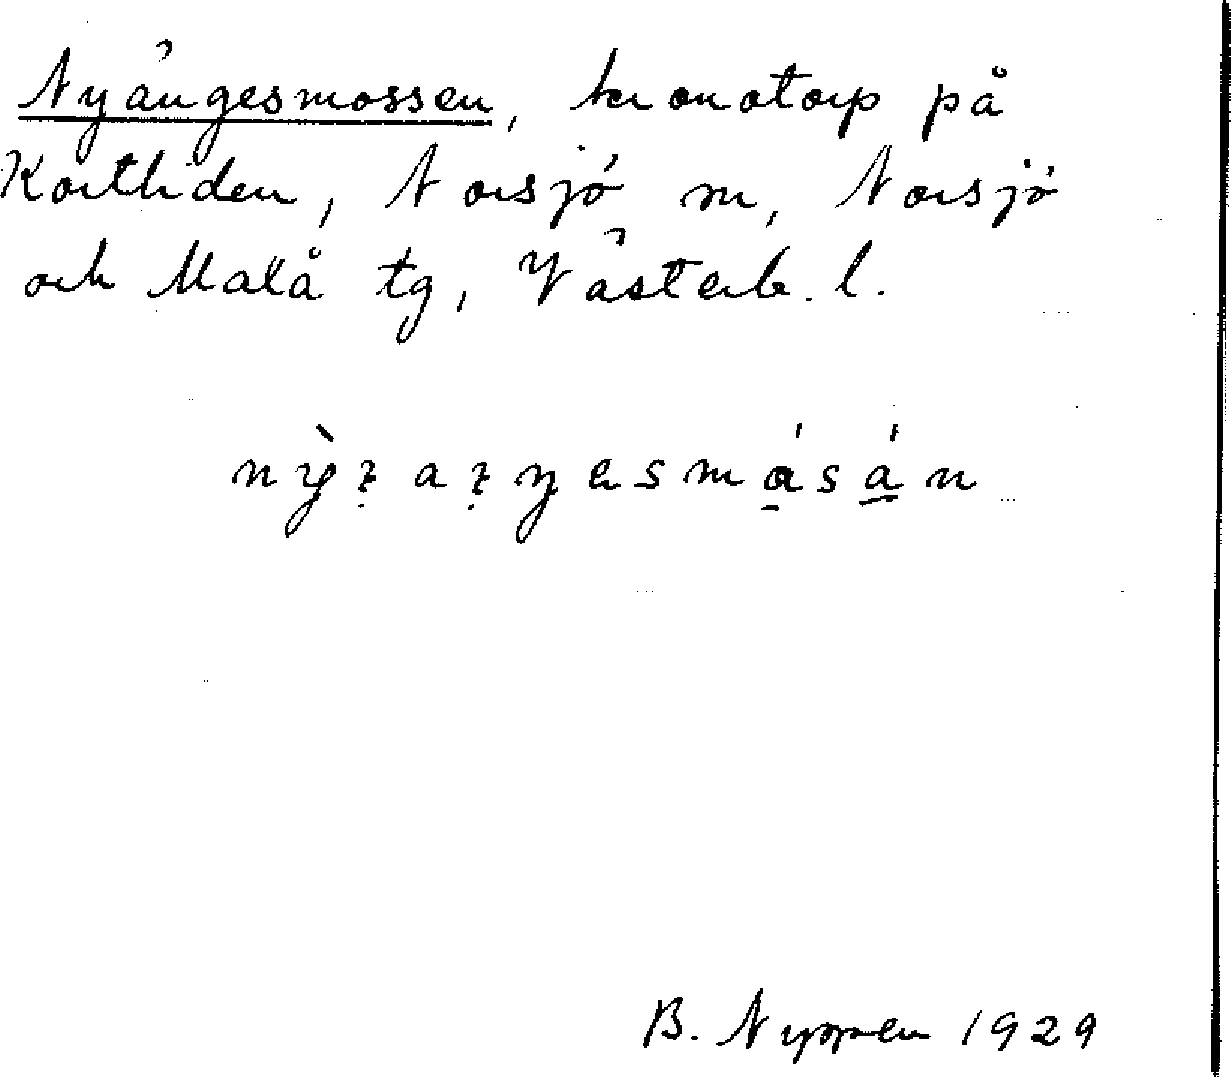 Nyängesmossen, kronotorp på
Kortliden, Norsjö sn, Norsjö
och Malå tg, Västerb. l.
B. Nyppen 1929